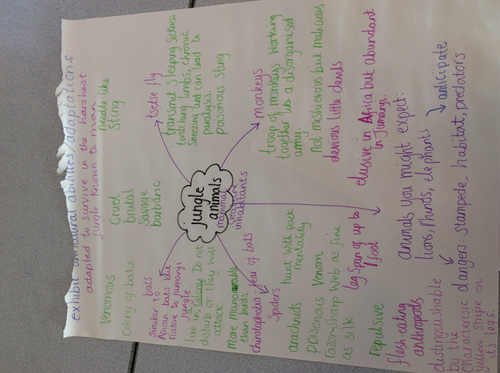 exhibit unnatural abilities/adaptations
adapted to survive in the harshest
jungle known to man.
Needle like
Sting
tsetse fly
transmit sleeping sickness
twitching limbs, chronic
sneezing and can lead to
paralysis
poisonous sting
monkeys
troop of monkeys working
together like a disorganised
army
Not mischievous but malicious
devious little devils
elusive in Africa but abundant
in Jumanji.
animals you might expect:
lions, rhinos, elephants
anticipate
dangers stampede, habitat, predators
jungle
animals
inhabitants
Cruel
brutal
Savage
barbaric
Venomous
Colony of bats
bats
Similar to
African bats but
Native to Jumanji
jungle
live in colony. Do not
disturb or they will
attack
More manoeuvrable
than birds
chiroptophobia fear of bats
Spiders
arachnids
hunt with pack
mentality
Poisonous Venom
razor-sharp web as fine
as silk
leg span of up to
1 foot
repulsive
flesh eating
anthropods
distinguishable
by the
characteristic
yellow stripe on
its legs.